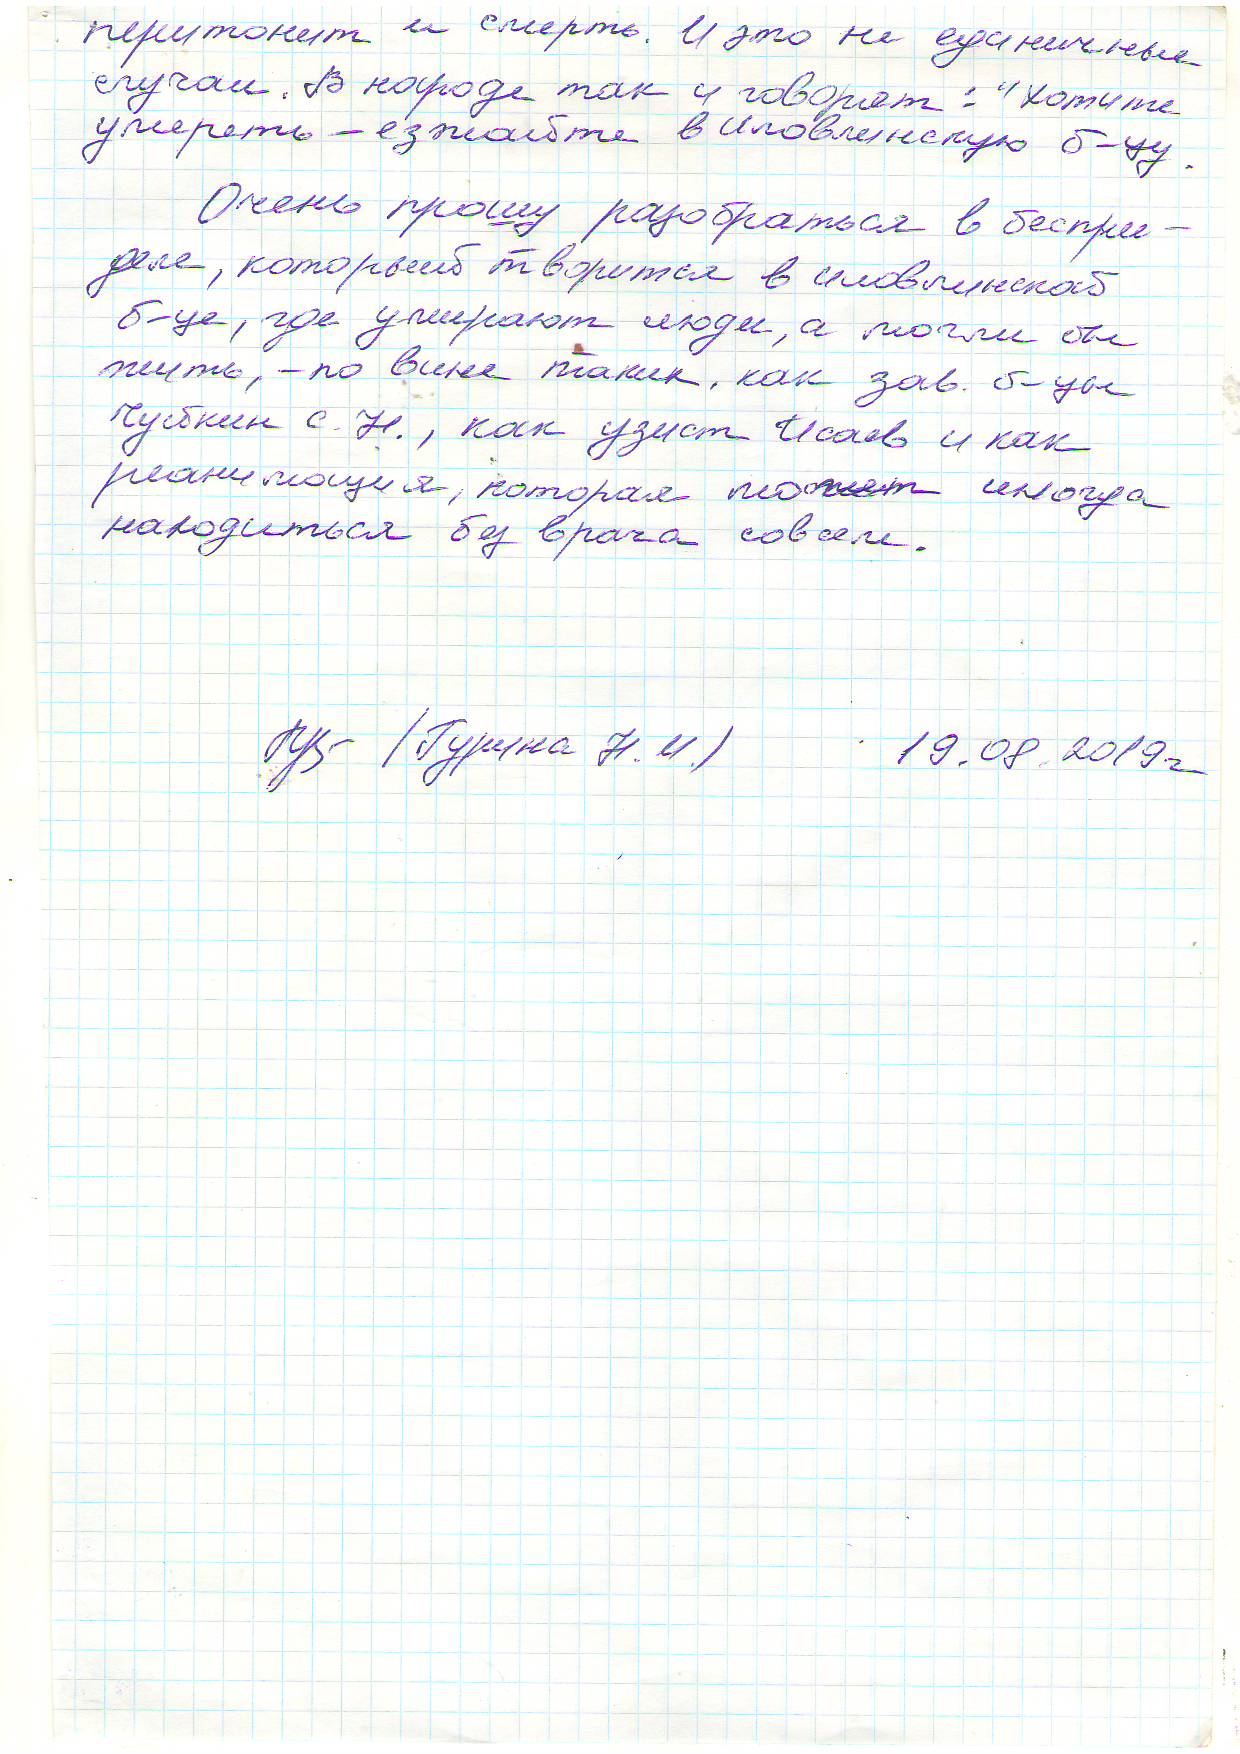 перитонит и смерть. И это не единичные
случаи. В народе так и говорят: "Хотите
умереть – езжайте в Иловлинскую б-цу.
Очень прошу разобраться в беспре-
деле, который творится в Иловлинской
б-це, где умирают люди, а могли бы
жить, – по вине таких, как зав. б-цы
С. Н., как узист Исаев и как
реанимация, которая может иногда
находиться без врача совсем.
(Гурина Н. И.) 19.08.2019г